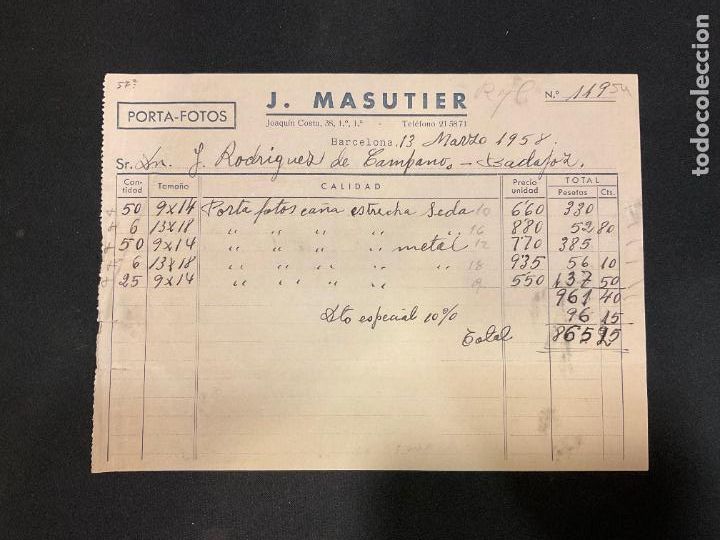 57ª
J. MASUTIER
RyC
N.º 11954
PORTA-FOTOS
Joaquín Costa, 38, 1.º, 1.ª - Teléfono 21 58 71
Barcelona, 13 Marzo 1958.
Sr. Dn. J. Rodrigues de Campano. - Badajoz.
Cantidad Tamaño CALIDAD Precio unidad TOTAL Pesetas Cts.
50 9x14 Porta fotos caña estrecha Seda 10 6'60 330
6 13x18 " " " " " 16 8'80 52 80
50 9x14 " " " " metal 12 7'70 385
6 13x18 " " " " " 18 9'35 56 10
25 9x14 " " " " " 9 5'50 137 50
961 40
Dto especial 10% 96 15
Total 865 25
todocoleccion